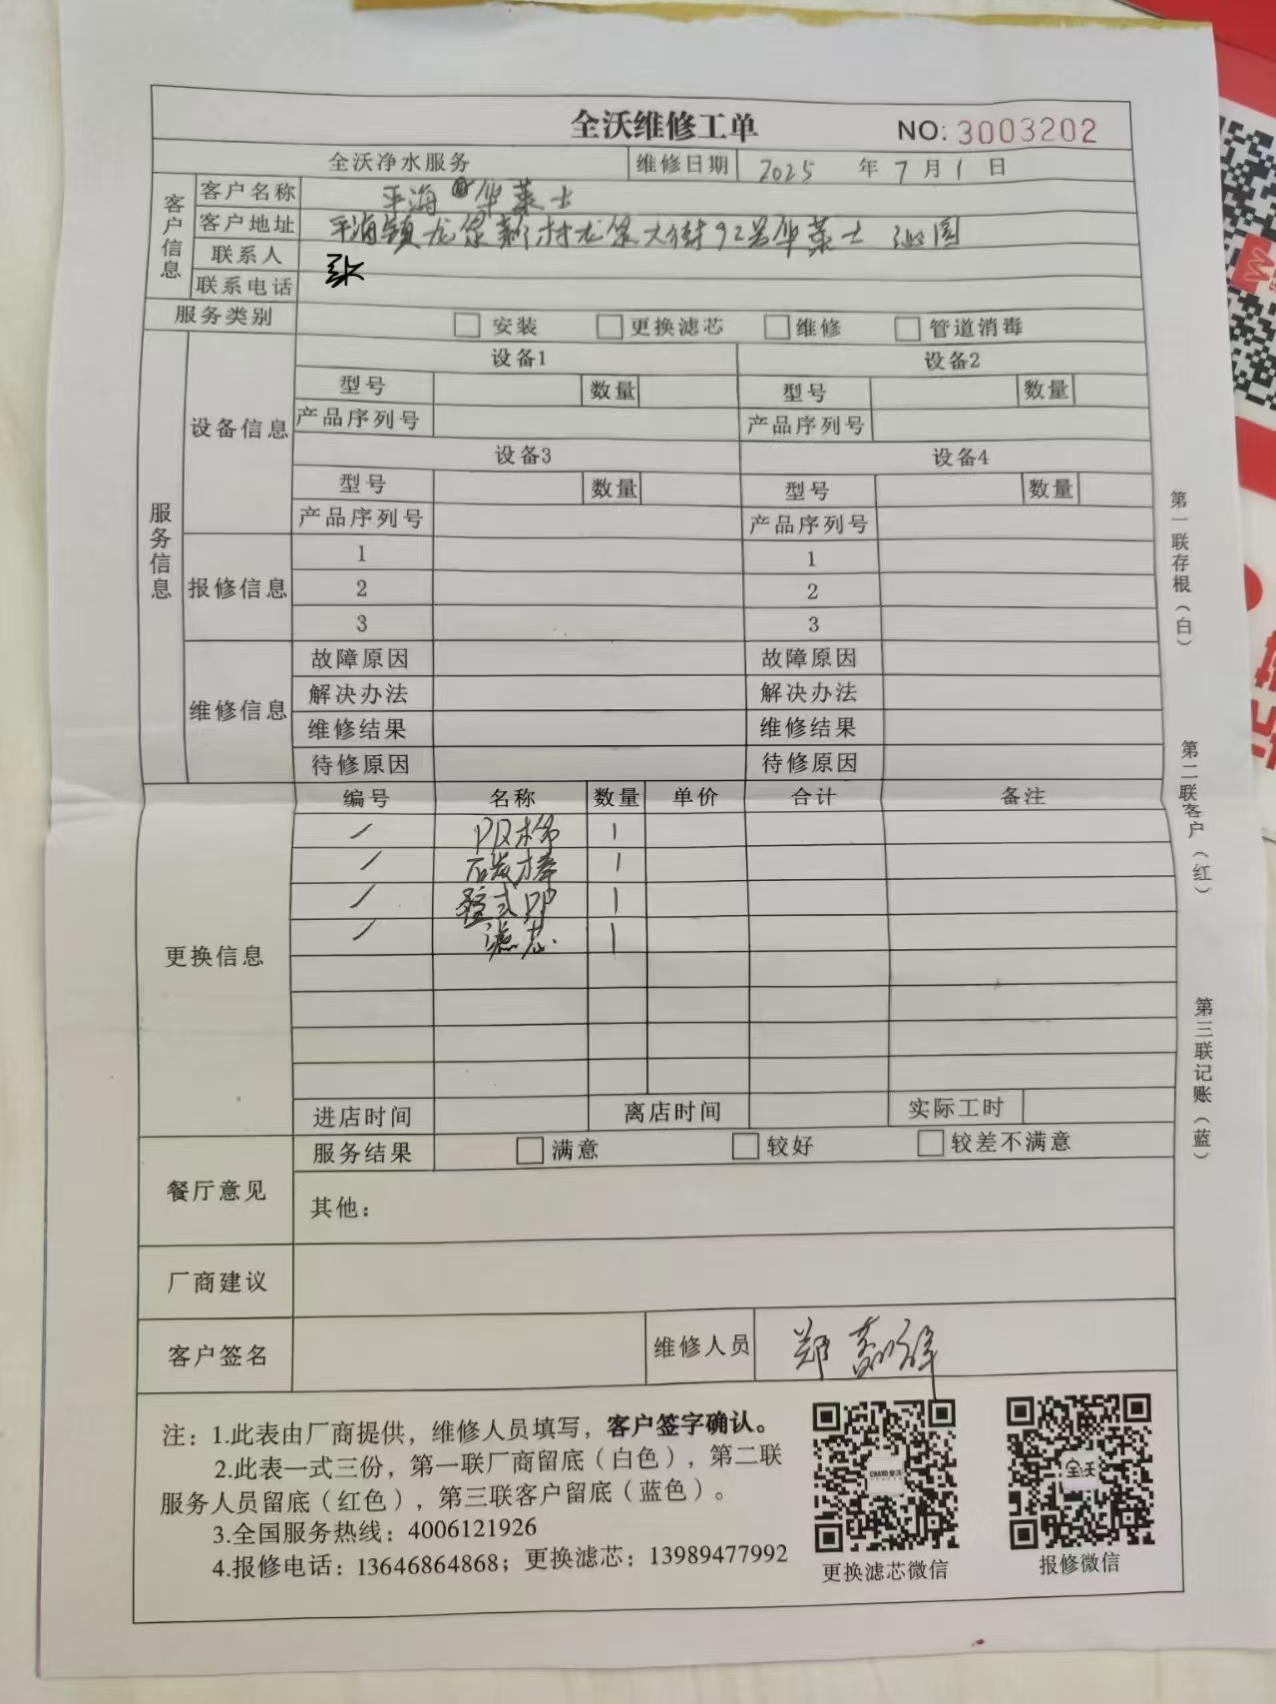 全沃维修工单 NO: 3003202
全沃净水服务 维修日期 2025 年 7 月 1 日
客户信息
客户名称 平海 华莱士
客户地址 平海镇龙泉新村龙泉大街92号华莱士
联系人 张
联系电话
服务类别 安装 更换滤芯 维修 管道消毒
服务信息
设备信息
设备1 设备2
型号 数量 型号 数量
产品序列号 产品序列号
设备3 设备4
型号 数量 型号 数量
产品序列号 产品序列号
报修信息
1 1
2 2
3 3
维修信息
故障原因 故障原因
解决办法 解决办法
维修结果 维修结果
待修原因 待修原因
更换信息
编号 名称 数量 单价 合计 备注
/ 棉 1
/ 后炭棒 1
/ 式PP 1
/ 滤芯 1
进店时间 离店时间 实际工时
餐厅意见
服务结果 满意 较好 较差不满意
其他：
厂商建议
客户签名 维修人员 郑
注：1.此表由厂商提供，维修人员填写，客户签字确认。
2.此表一式三份，第一联厂商留底（白色），第二联
服务人员留底（红色），第三联客户留底（蓝色）。
3.全国服务热线：4006121926
4.报修电话：13646864868；更换滤芯：13989477992
全沃
更换滤芯微信 报修微信
第一联存根（白）
第二联客户（红）
第三联记账（蓝）